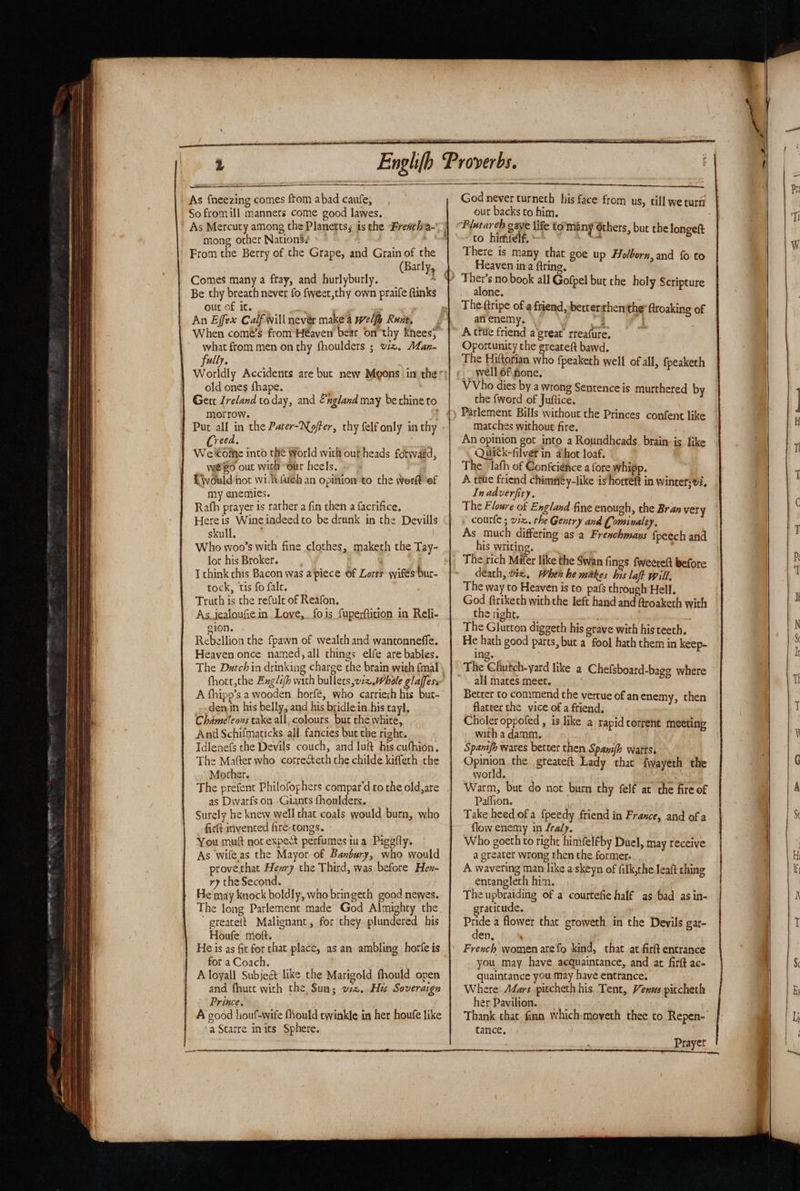 2 Engliſh Proverbs.
As ſneezing comes from a bad cauſe,
So from ill manners come good lawes.
As Mercury among the Planetts; is the French a-
mong other Nations;
From the Berry of the Grape, and Grain of the
(Barly,
Comes many a fray, and hurlyburly.
Be thy breath never ſo ſweet, thy own praiſe ſtinks
out of it.
An Eſſex Calf will never make a Welſh Runt.
When come's from Heaven bear on thy knees,
what from men on thy ſhoulders ; viz. Man-
fully.
Worldly Accidents are but new Moons in their
old ones ſhape.
Gett Ireland to day, and England may be thine to
morrow.
Put all in the Pater-Noſter, thy ſelf only in thy
Creed.
We come into the World with out heads forward,
we go out with our heels.
I would not with ſuch an opinion to the worſt of
my enemies.
Raſh prayer is rather a ſin then a ſacrifice.
Here is Wine indeed to be drunk in the Devills
skull.
Who woo's with fine clothes, maketh the Tay-
lor his Broker.
I think this Bacon was a piece of Lotts wifes but-
tock, tis ſo ſalt.
Truth is the reſult of Reaſon.
As jealouſie in Love, ſo is ſuperſtition in Reli-
gion.
Rebellion the ſpawn of wealth and wantonneſſe.
Heaven once named, all things elſe are bables.
The Dutch in drinking charge the brain with ſmal
ſhott, the Engliſh with bullets, viz. Whole glaſſes.
A ſhipp's a wooden horſe, who carrieth his bur-
den in his belly, and his bridle in his tayl.
Chameleons take all colours but the white,
And Schiſmaticks all fancies but the right.
Idleneſs the Devils couch, and luſt his cuſhion.
The Maſter who correcteth the childe kiſſeth the
Mother.
The preſent Philoſophers compar'd to the old, are
as Dwarfs on Giants ſhoulders.
Surely he knew well that coals would burn, who
firſt invented fire-tongs.
You muſt not expect perfumes in a Piggſty.
As wiſe as the Mayor of Banbury, who would
prove that Henry the Third, was before Hen-
ry the Second.
He may knock boldly, who bringeth good newes.
The long Parlement made God Almighty the
greateſt Malignant, for they plundered his
Houſe moſt.
He is as fit for that place, as an ambling horſe is
for a Coach.
A loyall Subject like the Marigold ſhould open
and ſhutt with the Sun; viz. His Soveraign
Prince.
A good houſ-wife ſhould twinkle in her houſe like
a Starre in its Sphere.
God never turneth his face from us, till we turn
our backs to him.
Plutarch gave life to many others, but the longeſt
to himſelf.
There is many that goe up Holborn, and ſo to
Heaven in a ſtring.
Ther's no book all Goſpel but the holy Scripture
alone.
The ſtripe of a friend, better then the ſtroaking of
an enemy.
A true friend a great treaſure.
Oportunity the greateſt bawd.
The Hiſtorian who ſpeaketh well of all, ſpeaketh
well of none.
VVho dies by a wrong Sentence is murthered by
the ſword of Juſtice.
Parlement Bills without the Princes conſent like
matches without fire.
An opinion got into a Roundheads brain is like
Quick-ſilver in a hot loaf.
The laſh of Conſcience a ſore whipp.
A true friend chimney-like is hotteſt in winter; vi.
In adverſity.
The Floure of England fine enough, the Bran very
courſe; viz. the Gentry and Cominalty.
As much differing as a Frenchmans ſpeech and
his writing.
The rich Miſer like the Swan ſings ſweeteſt before
death, viz. When he makes his laſt will.
The way to Heaven is to paſs through Hell.
God ſtriketh with the left hand and ſtroaketh with
the right.
The Glutton diggeth his grave with his teeth.
He hath good parts, but a fool hath them in keep-
ing.
The Church-yard like a Cheſsboard-bagg where
all mates meet.
Better to commend the vertue of an enemy, then
flatter the vice of a friend.
Choler oppoſed, is like a rapid torrent meeting
with a damm.
Spaniſh wares better then Spaniſh warrs.
Opinion the greateſt Lady that ſwayeth the
world.
Warm, but do not burn thy ſelf at the fire of
Paſſion.
Take heed of a ſpeedy friend in France, and of a
ſlow enemy in Italy.
Who goeth to right himſelf by Duel, may receive
a greater wrong then the former.
A wavering man like a skeyn of ſilk, the leaſt thing
entangleth him.
The upbraiding of a courteſie half as bad as in-
gratitude.
Pride a flower that groweth in the Devils gar-
den.
French women are ſo kind, that at firſt entrance
you may have acquaintance, and at firſt ac-
quaintance you may have entrance.
Where Mars pitcheth his Tent, Venus pitcheth
her Pavilion.
Thank that ſinn which moveth thee to Repen-
tance.
Prayer